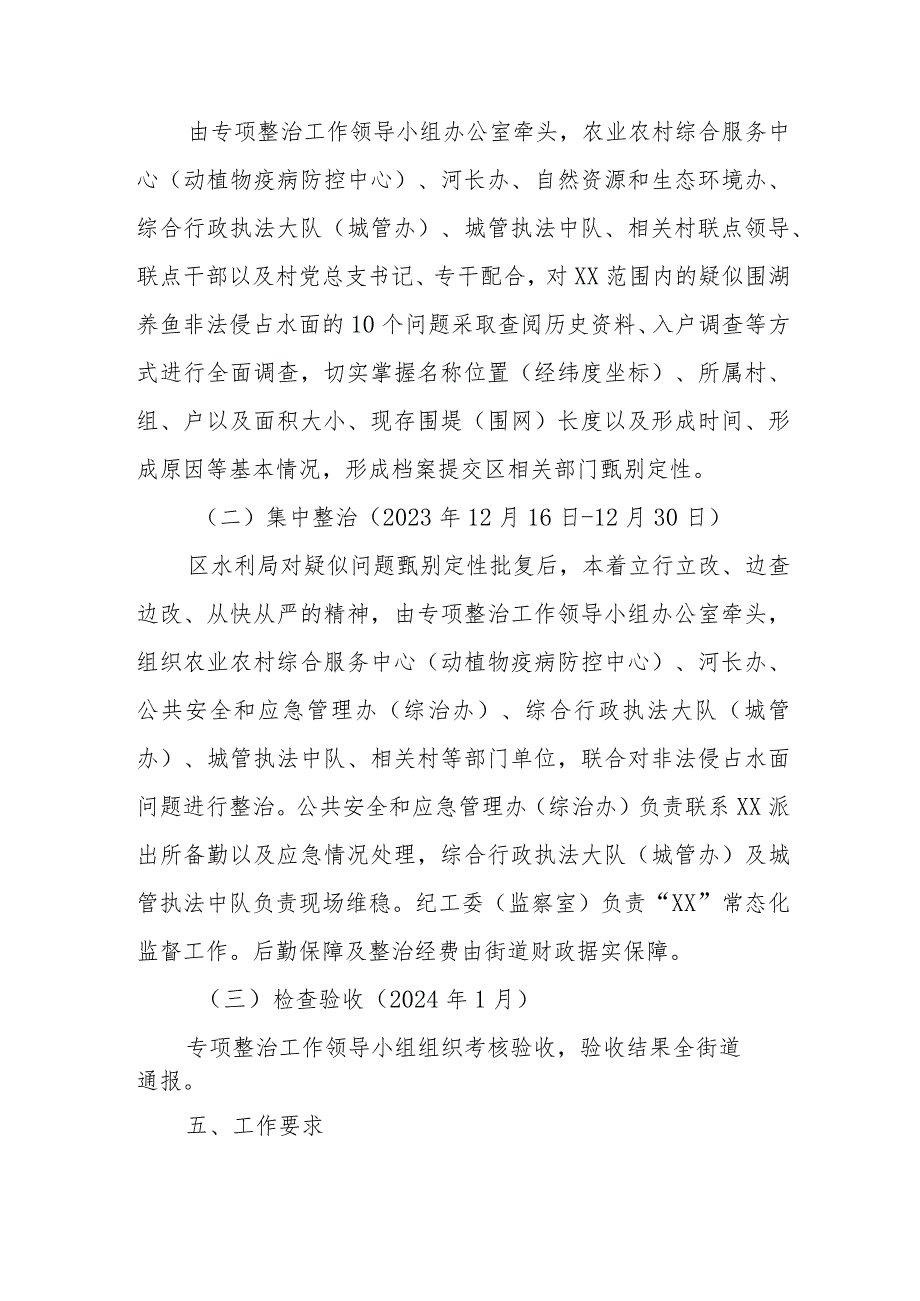 由专项整治工作领导小组办公室牵头，农业农村综合服务中
心（动植物疫病防控中心）、河长办、自然资源和生态环境办、
综合行政执法大队（城管办）、城管执法中队、相关村联点领导、
联点干部以及村党总支书记、专干配合，对XX范围内的疑似围湖
养鱼非法侵占水面的10个问题采取查阅历史资料、入户调查等方
式进行全面调查，切实掌握名称位置（经纬度坐标）、所属村、
组、户以及面积大小、现存围堤（围网）长度以及形成时间、形
成原因等基本情况，形成档案提交区相关部门甄别定性。
（二）集中整治（2023年12月16日-12月30日）
区水利局对疑似问题甄别定性批复后，本着立行立改、边查
边改、从快从严的精神，由专项整治工作领导小组办公室牵头，
组织农业农村综合服务中心（动植物疫病防控中心）、河长办、
公共安全和应急管理办（综治办）、综合行政执法大队（城管
办）、城管执法中队、相关村等部门单位，联合对非法侵占水面
问题进行整治。公共安全和应急管理办（综治办）负责联系XX派
出所备勤以及应急情况处理，综合行政执法大队（城管办）及城
管执法中队负责现场维稳。纪工委（监察室）负责“XX”常态化
监督工作。后勤保障及整治经费由街道财政据实保障。
（三）检查验收（2024年1月）
专项整治工作领导小组组织考核验收，验收结果全街道
通报。
五、工作要求